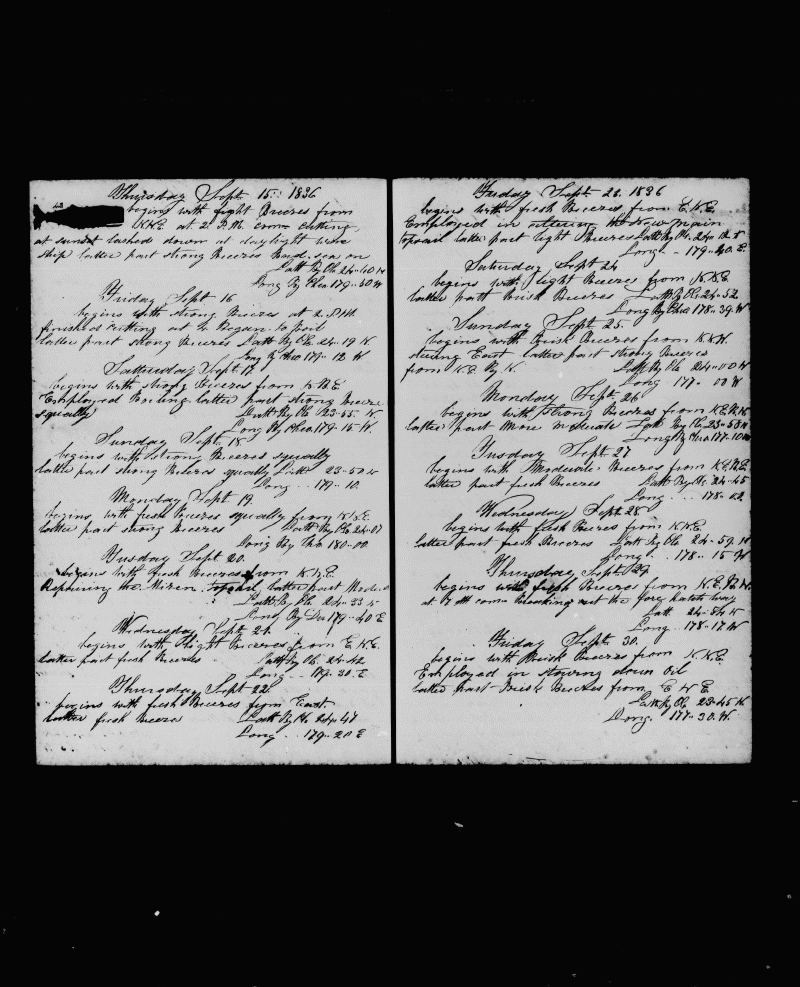 Thursday Sept 15. 1836
begins with light Breezes from
NNE at 2 P.M. com. cutting
at sunset lashed down at daylight wore
ship latter part strong Breezes Head sea on
Latt By Ob 24-40 N
Long By Chro 179-30 W
Friday Sept 16
begins with strong Breezes at 2 P.M
finished cutting at 4 Began to boil
latter part strong Breezes Latt By Ob 24-19 N
Long By Chro 179-12 W
Saturday Sept 17
begins with strong Breezes from NNE
Employed Boiling latter part strong Breeze
squally Latt By Ob 23-55 N
Long By Chro 179-15 W
Sunday Sept. 18
begins with strong Breezes squally
latter part strong Breezes squally Latt 23-50 N
Long .. 179-10
Monday Sept 19
begins with fresh Breezes squally from
latter part strong Breezes Latt By Ob 24-07
Long By Chr 180-00
Tusday Sept 20.
begins with fresh Breezes from
Repairing the Mizen latter part
Latt By Ob. 24-33 N
Long By 179-40 E
Wednesday Sept 21.
begins with light Breezes from E.N.E.
latter part fresh Breezes Latt By Ob 24-42
Long .. 179-30 E
Thursday Sept 22
begins with fresh Breezes from East
latter fresh Breeze Latt By Ob. 24-47
Long .. 179-20 E
Friday Sept 23. 1836
begins with fresh Breezes from E.N.E.
Employed in altering the new main
topsail latter part light Breezes Latt By Ob. 24-12
Long - 179-40. E
Saturday Sept 24
begins with light Breezes from NNE
latter part Brisk Breezes Latt By Ob 24-52
Long By Chro 178-39 W
Sunday Sept 25.
begins with Brisk Breezes from
steering East latter part strong Breezes
from N.E. By N. Latt By Ob. 24-00 N
Long 177-00 W
Monday Sept. 26
begins with strong Breezes from
latter part More moderate Latt By Ob. 23-58 N
Long By Chro 177-10 W
Tusday Sept 27
begins with Moderate Breezes from
latter part fresh Breezes Latt By Ob. 24-45
Long ... 178-02
Wednesday Sept 28
begins with fresh Breezes from N.N.E
latter part fresh Breezes Latt By Ob 24-59. N
Long . 178-15 W
Thursday Sept 29
begins with fresh Breezes from
at com. Breaking out the fore hatch way
Latt 24-54 N
Long.. 178-17 W
Friday Sept. 30.
begins with Brisk Breezes from N.N.E.
Employed in stowing down Oil
latter part Brisk Breezes from E N E.
Latt By Ob. 23-45 N
Long. 177-30. W.